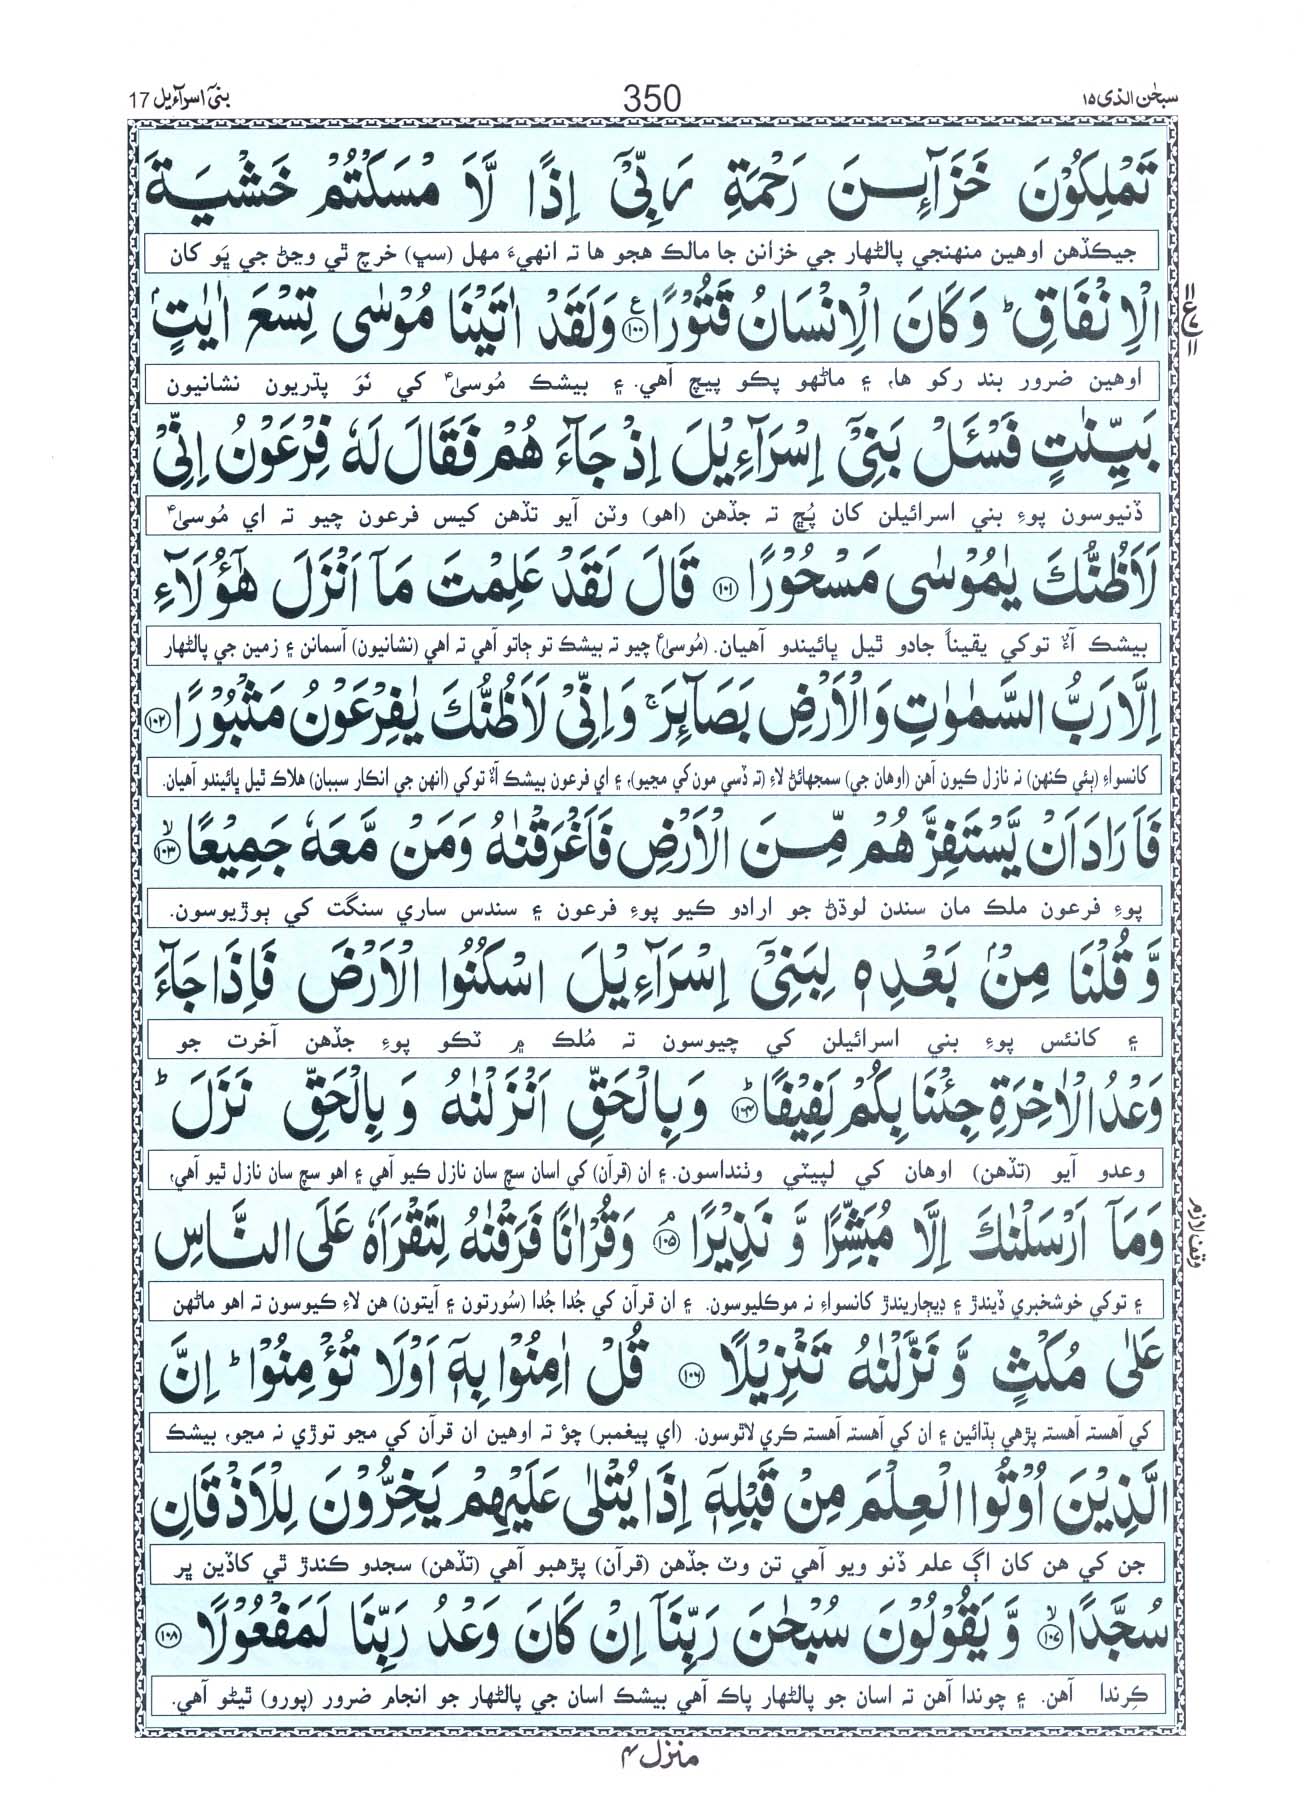 سبحٰن الذی ۱۵
350
بنیٓ اسرآءیل 17
تَمْلِكُوْنَ خَزَآىِٕنَ رَحْمَةِ رَبِّیْۤ اِذًا لَّا مْسَكْتُمْ خَشْیَةَ
جيڪڏهن اوهين منهنجي پالڻهار جي خزانن جا مالڪ هجو ها تہ انهيءَ مهل (سڀ) خرچ ٿي وڃڻ جي ڀَو کان
الْاِنْفَاقِ ؕ وَ كَانَ الْاِنْسَانُ قَتُوْرًا ۠﴿۱۰۰﴾ وَ لَقَدْ اٰتَیْنَا مُوْسٰی تِسْعَ اٰیٰتٍۭ
اوهين ضرور بند رکو ها، ۽ ماڻهو پڪو پيچ آهي. ۽ بيشڪ مُوسيٰؑ کي نَوَ پڌريون نشانيون
بَیِّنٰتٍ فَسْـَٔلْ بَنِیْۤ اِسْرَآءِیْلَ اِذْ جَآءَ هُمْ فَقَالَ لَهٗ فِرْعَوْنُ اِنِّیْ
ڏنيوسون پوءِ بني اسرائيلن کان پُڇ تہ جڏهن (اهو) وٽن آيو تڏهن کيس فرعون چيو تہ اي مُوسيٰؑ
لَاَظُنُّكَ یٰمُوْسٰی مَسْحُوْرًا ﴿۱۰۱﴾ قَالَ لَقَدْ عَلِمْتَ مَاۤ اَنْزَلَ هٰۤؤُلَآءِ
بيشڪ آءٌ توکي يقيناً جادو ٿيل ڀائيندو آهيان. (مُوسيٰؑ) چيو تہ بيشڪ تو ڄاتو آهي تہ اهي (نشانيون) آسمانن ۽ زمين جي پالڻهار
اِلَّا رَبُّ السَّمٰوٰتِ وَ الْاَرْضِ بَصَآىِٕرَ ۚ وَ اِنِّیْ لَاَظُنُّكَ یٰفِرْعَوْنُ مَثْبُوْرًا ﴿۱۰۲﴾
کانسواءِ (ٻئي ڪنهن) نہ نازل ڪيون آهن (اوهان جي) سمجهائڻ لاءِ (تہ ڏسي مون کي مڃيو)، ۽ اي فرعون بيشڪ آءٌ توکي (انهن جي انڪار سببان) هلاڪ ٿيل ڀائيندو آهيان.
فَاَرَادَ اَنْ یَّسْتَفِزَّهُمْ مِّنَ الْاَرْضِ فَاَغْرَقْنٰهُ وَ مَنْ مَّعَهٗ جَمِیْعًا ۙ﴿۱۰۳﴾
پوءِ فرعون ملڪ مان سندن لوڏڻ جو ارادو ڪيو پوءِ فرعون ۽ سندس ساري سنگت کي ٻوڙيوسون.
وَّ قُلْنَا مِنْۢ بَعْدِهٖ لِبَنِیْۤ اِسْرَآءِیْلَ اسْكُنُوا الْاَرْضَ فَاِذَا جَآءَ
۽ کانئس پوءِ بني اسرائيلن کي چيوسون تہ مُلڪ ۾ ٽڪو پوءِ جڏهن آخرت جو
وَعْدُ الْاٰخِرَةِ جِئْنَا بِكُمْ لَفِیْفًا ؕ﴿۱۰۴﴾ وَ بِالْحَقِّ اَنْزَلْنٰهُ وَ بِالْحَقِّ نَزَلَ ؕ
وعدو آيو (تڏهن) اوهان کي لپيٽي وٺنداسون. ۽ ان (قرآن) کي اسان سچ سان نازل ڪيو آهي ۽ اهو سچ سان نازل ٿيو آهي،
وَ مَاۤ اَرْسَلْنٰكَ اِلَّا مُبَشِّرًا وَّ نَذِیْرًا ۘ﴿۱۰۵﴾ وَ قُرْاٰنًا فَرَقْنٰهُ لِتَقْرَاَهٗ عَلَی النَّاسِ
۽ توکي خوشخبري ڏيندڙ ۽ ڊيڄاريندڙ کانسواءِ نہ موڪليوسون. ۽ ان قرآن کي جُدا جُدا (سُورتون ۽ آيتون) هن لاءِ ڪيوسون تہ اهو ماڻهن
عَلٰی مُكْثٍ وَّ نَزَّلْنٰهُ تَنْزِیْلًا ﴿۱۰۶﴾ قُلْ اٰمِنُوْا بِهٖۤ اَوْ لَا تُؤْمِنُوْا ؕ اِنَّ
کي آهستہ آهستہ پڙهي ٻڌائين ۽ ان کي آهستہ آهستہ ڪري لاٿوسون. (اي پيغمبر) چؤ تہ اوهين ان قرآن کي مڃو توڙي نہ مڃو، بيشڪ
الَّذِیْنَ اُوْتُوا الْعِلْمَ مِنْ قَبْلِهٖۤ اِذَا یُتْلٰی عَلَیْهِمْ یَخِرُّوْنَ لِلْاَذْقَانِ
جن کي هن کان اڳ علم ڏنو ويو آهي تن وٽ جڏهن (قرآن) پڙهبو آهي (تڏهن) سجدو ڪندڙ ٿي کاڏين ڀر
سُجَّدًا ۙ﴿۱۰۷﴾ وَّ یَقُوْلُوْنَ سُبْحٰنَ رَبِّنَاۤ اِنْ كَانَ وَعْدُ رَبِّنَا لَمَفْعُوْلًا ﴿۱۰۸﴾
ڪِرندا آهن. ۽ چوندا آهن تہ اسان جو پالڻهار پاڪ آهي بيشڪ اسان جي پالڻهار جو انجام ضرور (پورو) ٿيڻو آهي.
وقف لازم
منزل ۴